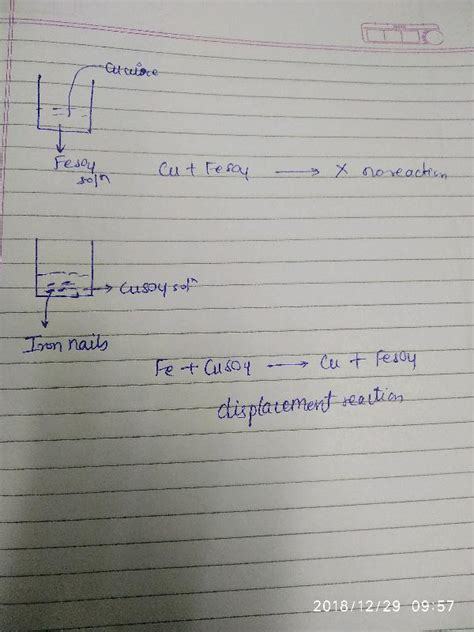 Cu wire
FeSO4
sol^n
Cu + FeSO4 → X no reaction
→ CuSO4 sol^n
Iron nails
Fe + CuSO4 → Cu + FeSO4
displacement reaction
2018/12/29 09:57